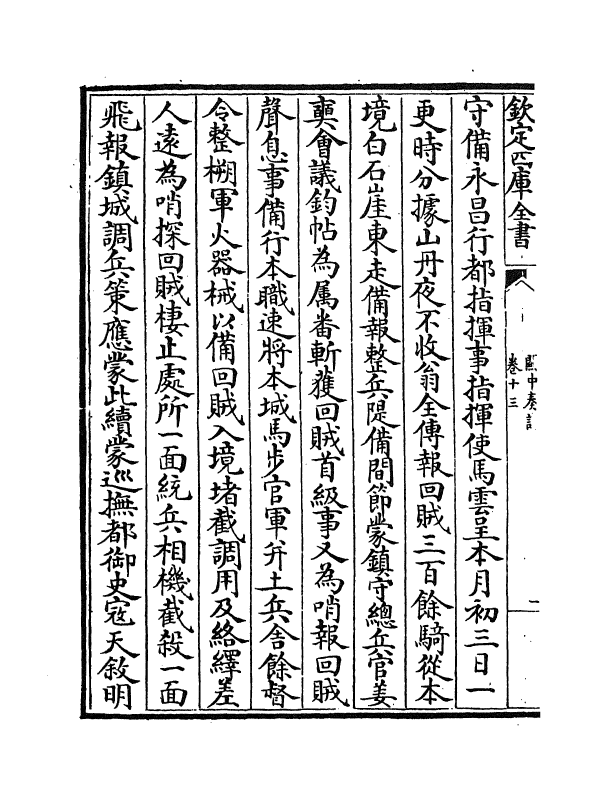 欽定四庫全書
關中奏議
卷十三
守備永昌行都指揮事指揮使馬雲呈本月初三日一
更時分據山丹夜不收翁全傳報回賊三百餘騎從本
境白石崖東走備報整兵隄備間節蒙鎮守總兵官姜
奭會議鈞帖為属畨斬獲回賊首級事又為哨報回賊
聲息事備行本職速將本城馬步官軍并土兵舍餘督
令整搠軍火器械以備回賊入境堵截調用及絡繹差
人遠為哨探回賊棲止處所一面統兵相機截殺一面
飛報鎮城調兵策應蒙此續蒙巡撫都御史寇天敘明